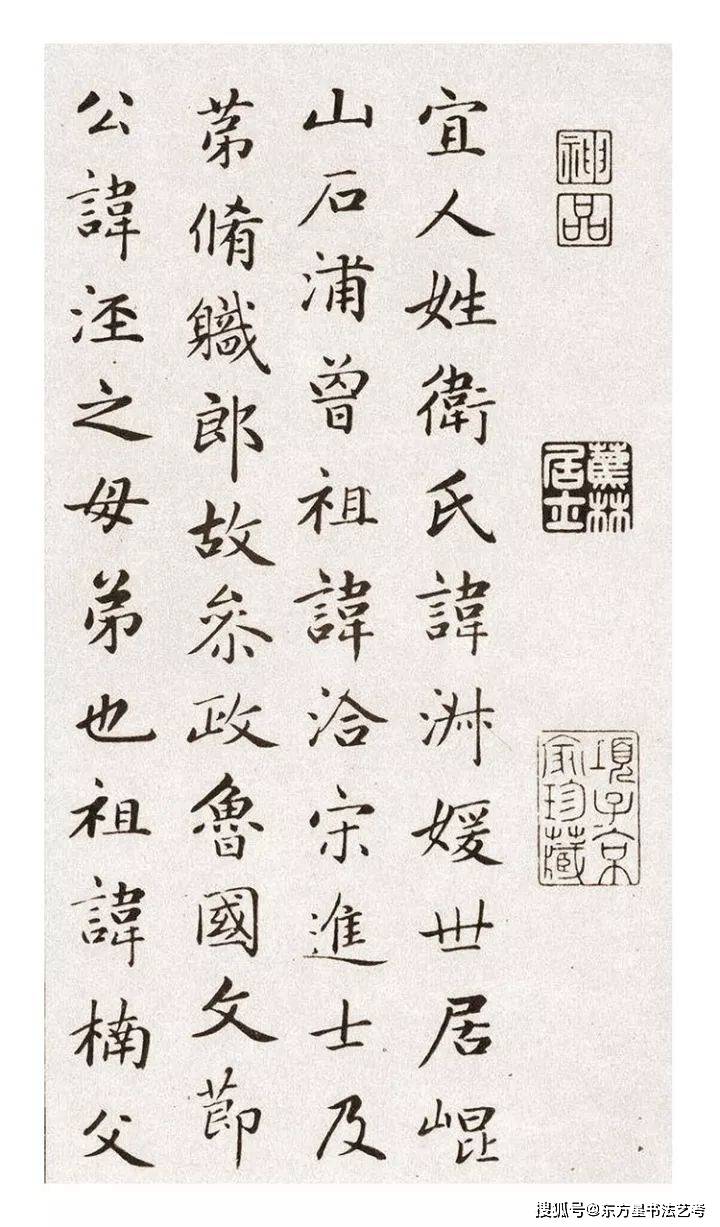 神品
蕉林居士
項子京家珍藏
宜人姓衛氏諱淑媛世居崐
山石浦曾祖諱洽宋進士及
苐脩軄郎故叅政魯國文莭
公諱涇之母弟也祖諱楠父
搜狐号@东方星书法艺考